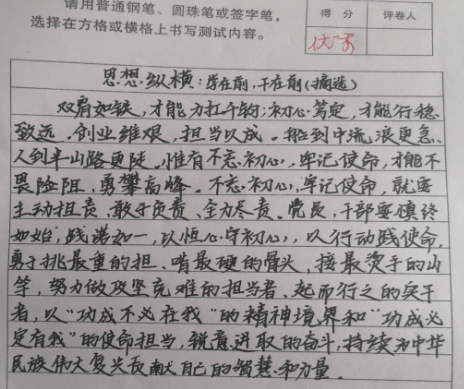 请用普通钢笔、圆珠笔或签字笔，
选择在方格或横格上书写测试内容。
得 分
评卷人
优秀
思想·纵横：学在前，干在前（摘选）
双肩如铁，才能力扛千钧；初心笃定，才能行稳
致远。创业维艰，担当以成。船到中流浪更急、
人到半山路更陡。惟有不忘初心，牢记使命，才能不
畏险阻，勇攀高峰。不忘初心，牢记使命，就要
主动担责、敢于负责、全力尽责。党员，干部要慎终
如始，践诺如一，以恒心守初心，以行动践使命，
勇于挑最重的担、啃最硬的骨头，接最烫手的山
芋，努力做攻坚克难的担当者、起而行之的实干
者，以"功成不必在我"的精神境界和"功成必
定有我"的使命担当，锐意进取的奋斗，持续为中华
民族伟大复兴贡献自己的智慧和力量。